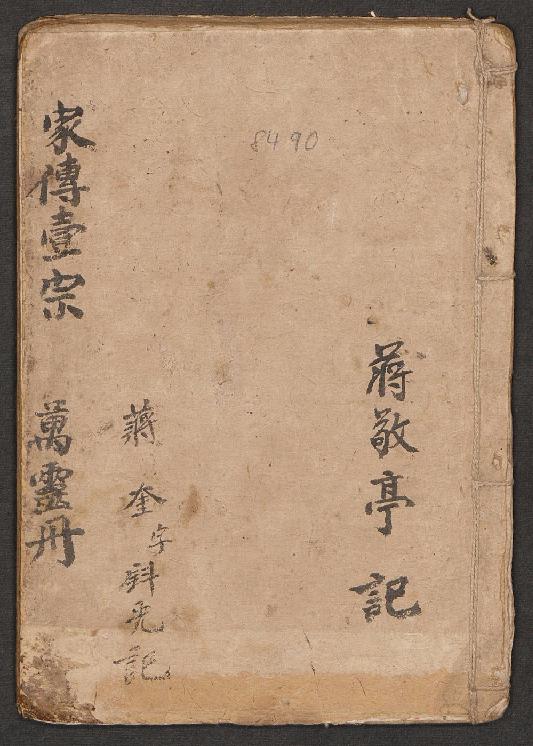 8490
蔣敬亭 記
蔣奎字斛光記
家傳壹宗 萬靈册